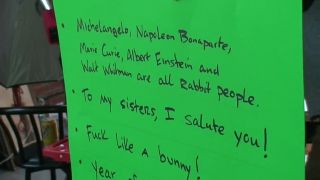 • Michelangelo, Napoleon Bonaparte,
Marie Curie, Albert Einstein and
Walt Whitman are all Rabbit people.
• To my sisters, I salute you!
• Fuck like a bunny!
• Year of